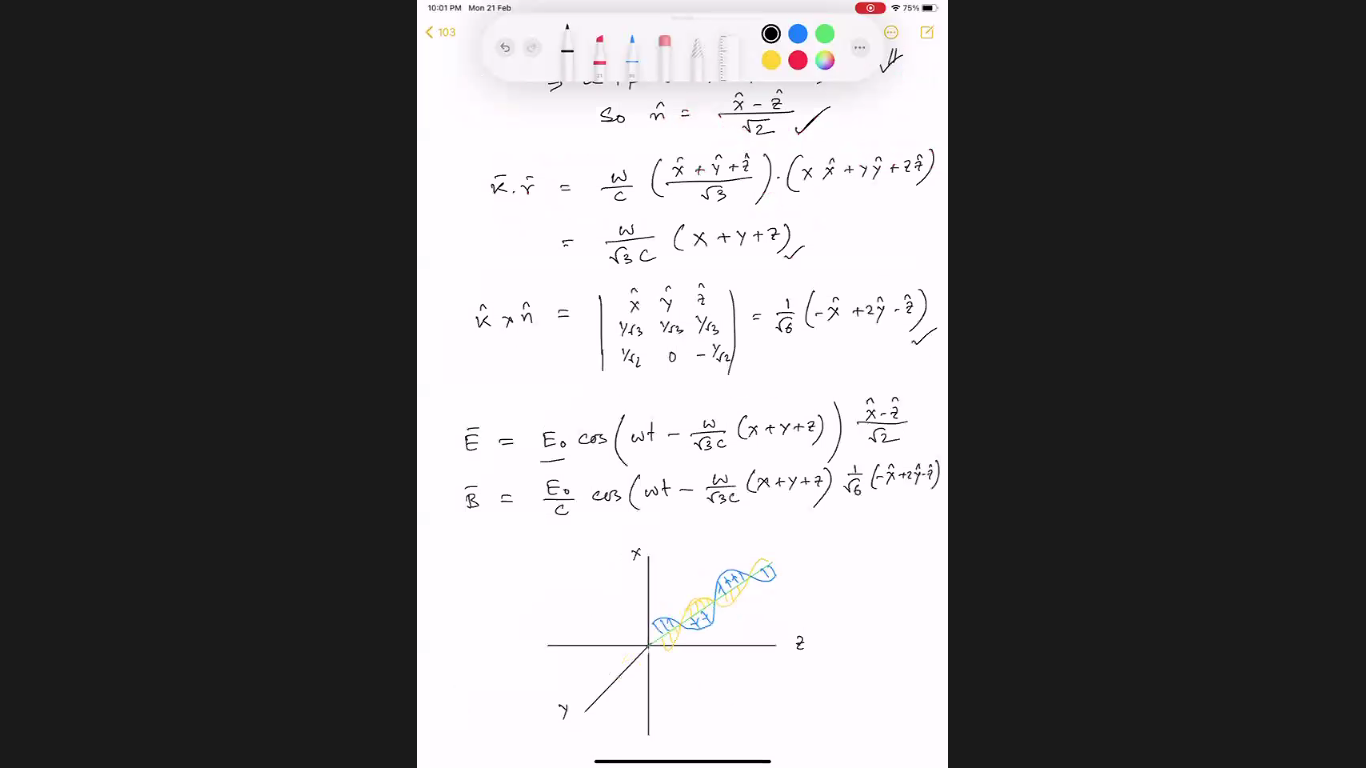 10:01 PM Mon 21 Feb 75%
103
So n̂ = (x̂ - ẑ)/√2
k̄.r̄ = ω/c ((x̂ + ŷ + ẑ)/√3).(x x̂ + y ŷ + z ẑ)
= ω/(√3 c) (x + y + z)
k̂ × n̂ = | x̂ ŷ ẑ |
1/√3 1/√3 1/√3 = 1/√6 (-x̂ + 2ŷ - ẑ)
1/√2 0 -1/√2
Ē = E₀ cos(ωt - ω/(√3c) (x+y+z)) (x̂-ẑ)/√2
B̄ = E₀/c cos(ωt - ω/(√3c) (x+y+z)) 1/√6 (-x̂+2ŷ-ẑ)
x
z
y